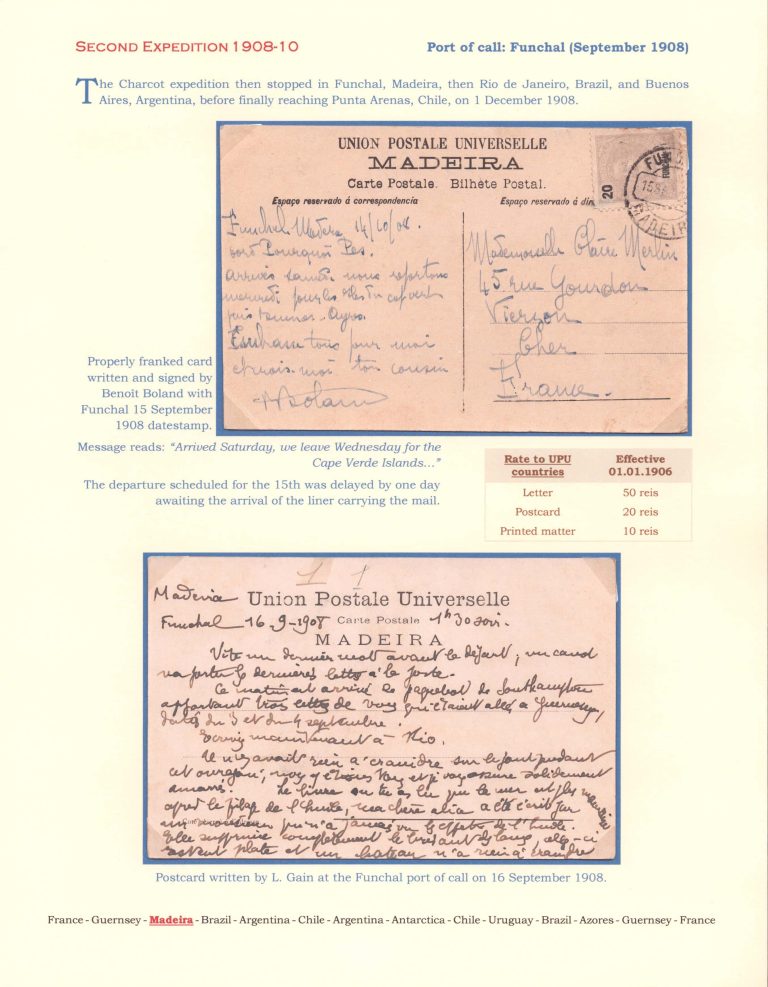 SECOND EXPEDITION 1908-10
Port of call: Funchal (September 1908)
The Charcot expedition then stopped in Funchal, Madeira, then Rio de Janeiro, Brazil, and Buenos
Aires, Argentina, before finally reaching Punta Arenas, Chile, on 1 December 1908.
UNION POSTALE UNIVERSELLE
MADEIRA
Carte Postale. Bilhete Postal.
Espaço reservado á correspondencia
Espaço reservado á
20
FUNCHAL
MADEIRA
Funchal Madera 14/10/08.
bord Pourquoi Pas.
arrivés samedi nous repartons
mercredi pour les îles du cap vert
puis Buenos-Ayres.
Embrasse tous pour moi
ton cousin
Boland
Mademoiselle Claire Merlin
45 rue Gourdon
Vierzon
Cher
France.
Properly franked card
written and signed by
Benoît Boland with
Funchal 15 September
1908 datestamp.
Message reads: “Arrived Saturday, we leave Wednesday for the
Cape Verde Islands...”
The departure scheduled for the 15th was delayed by one day
awaiting the arrival of the liner carrying the mail.
Rate to UPU countries Effective 01.01.1906
Letter 50 reis
Postcard 20 reis
Printed matter 10 reis
1 1
Madeira Union Postale Universelle
Funchal 16-9-1908 Carte Postale 1h30 soir.
MADEIRA
Vite un dernier mot avant le départ; un canot
va porter les dernières lettres à la poste.
Ce matin est arrivé le paquebot de Southampton
apportant trois lettres de vous qui étaient allées à Guernesey,
datées du 3 et du 4 septembre.
Ecrivez maintenant à Rio.
Il n'y avait rien à craindre sur le pont pendant
cet ouragan, nous y étions tous et je vous assure solidement
amarrés. Le livre où tu as lu que la mer est plus mauvaise
après le filage de l'huile, ma chère a été écrit par
un qui n'a jamais vu les effets de l'huile.
Elle supprime complètement le brisant des lames, celles-ci
et un bateau n'a rien à craindre
Postcard written by L. Gain at the Funchal port of call on 16 September 1908.
France - Guernsey - Madeira - Brazil - Argentina - Chile - Argentina - Antarctica - Chile - Uruguay - Brazil - Azores - Guernsey - France